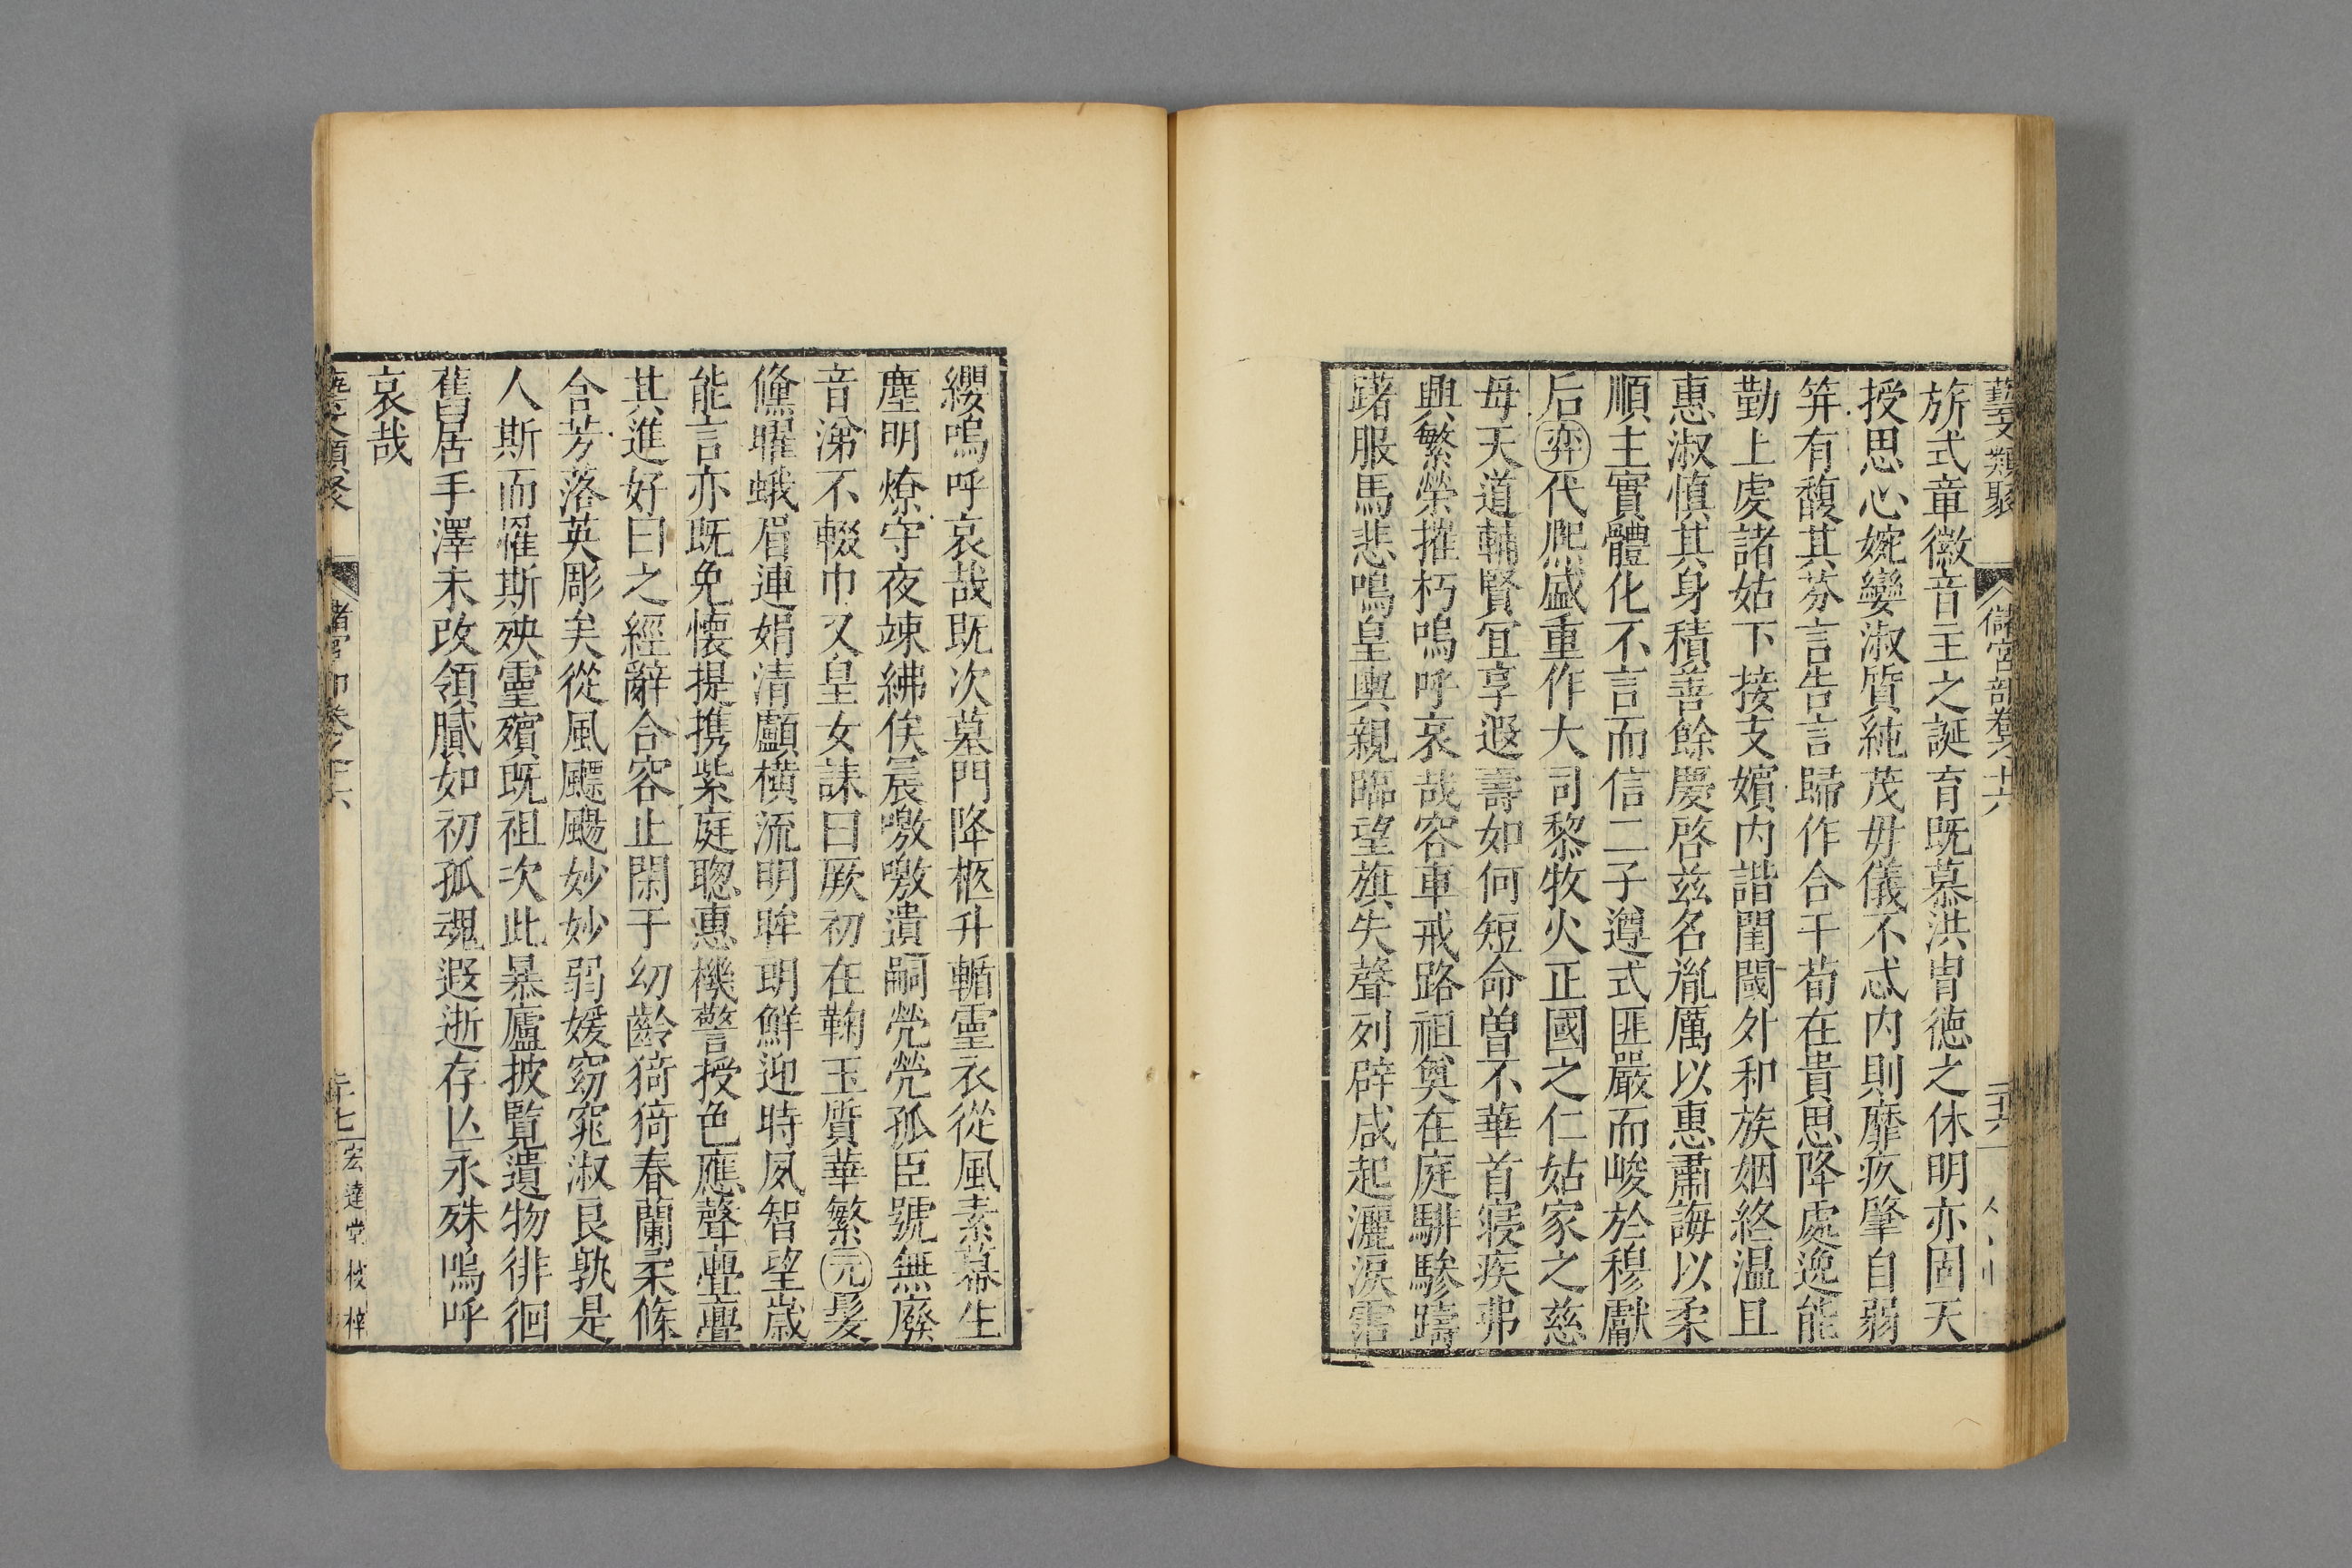 藝文類聚 儲宮部卷之十六
旂式章徽音王之誕育既慕洪胄德之休明亦固天
授思心婉孌淑質純茂毋儀不忒内則靡疚肇自弱
笄有馥其芬言告言歸作合于荀在貴思降處逸能
勤上虔諸姑下接支嬪内諧閨閫外和族姻終温且
惠淑慎其身積善餘慶啓兹名胤厲以惠肅誨以柔
順主實體化不言而信二子遵式匪嚴而峻於穆獻
后弈代熙盛重作大司黎牧火正國之仁姑家之慈
母天道輔賢宜享遐壽如何短命曽不華首寝疾弗
興繁榮摧朽嗚呼哀哉容車戒路祖奠在庭騑驂躊
躇服馬悲鳴皇輿親臨望旗失聲列辟咸起灑淚霑
纓嗚呼哀哉既次墓門降柩升輴靈衣從風素幕生
塵明燎守夜竦紼俟晨噭噭遺嗣煢煢孤臣號無廢
音涕不輟巾又皇女誄曰厥初在鞠玉質華繁元髮
儵曜蛾眉連娟清顱横流明眸朗鮮迎時夙智望歲
能言亦既免懷提攜紫庭聰惠機警授色應聲亹亹
其進好曰之經辭合容止閑于幼齡猗猗春蘭柔條
含芳落英彫矣從風飃颺妙妙弱媛窈窕淑良孰是
人斯而罹斯殃靈殯既祖次此暴廬披覧遺物徘徊
舊居手澤未改領膩如初孤魂遐逝存亾永殊嗚呼
哀哉
藝文類聚 儲宮部卷之十六 二十七 宏達堂校梓